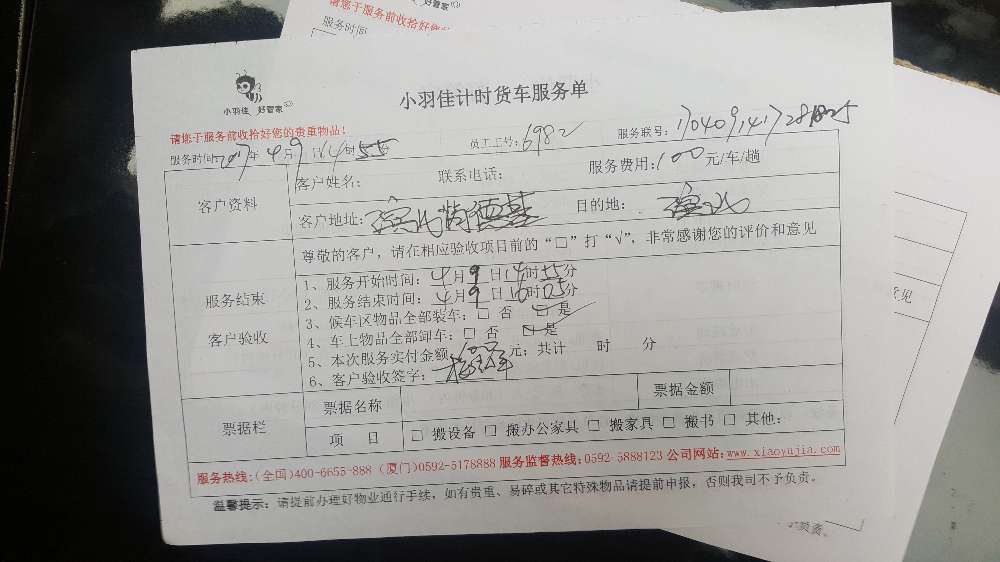 请您于服务前收拾好您
好管家
服务时间
小羽佳 好管家
小羽佳计时货车服务单
请您于服务前收拾好您的贵重物品!
服务时间:2017年4月9日14时55 员工工号:6982 服务联号:
客户资料
客户姓名: 联系电话: 服务费用:100元/车/趟
客户地址: 肯德基 目的地:
尊敬的客户,请在相应验收项目前的“□”打“√”,非常感谢您的评价和意见
服务结束
客户验收
1、服务开始时间:4月9日14时55分
2、服务结束时间:4月9日16时05分
3、候车区物品全部装车:□ 否 □ 是
4、车上物品全部卸车:□ 否 □ 是
5、本次服务实付金额100元;共计 时 分
6、客户验收签字:
票据栏
票据名称 票据金额
项 目 □ 搬设备 □ 搬办公家具 □ 搬家具 □ 搬书 □ 其他:
服务热线:(全国)400-6655-888 (厦门)0592-5178888 服务监督热线:0592-5888123 公司网站:www.xiaoyujia.com
温馨提示:请提前办理好物业通行手续,如有贵重、易碎或其它特殊物品请提前申报,否则我司不予负责。
意见
负责。